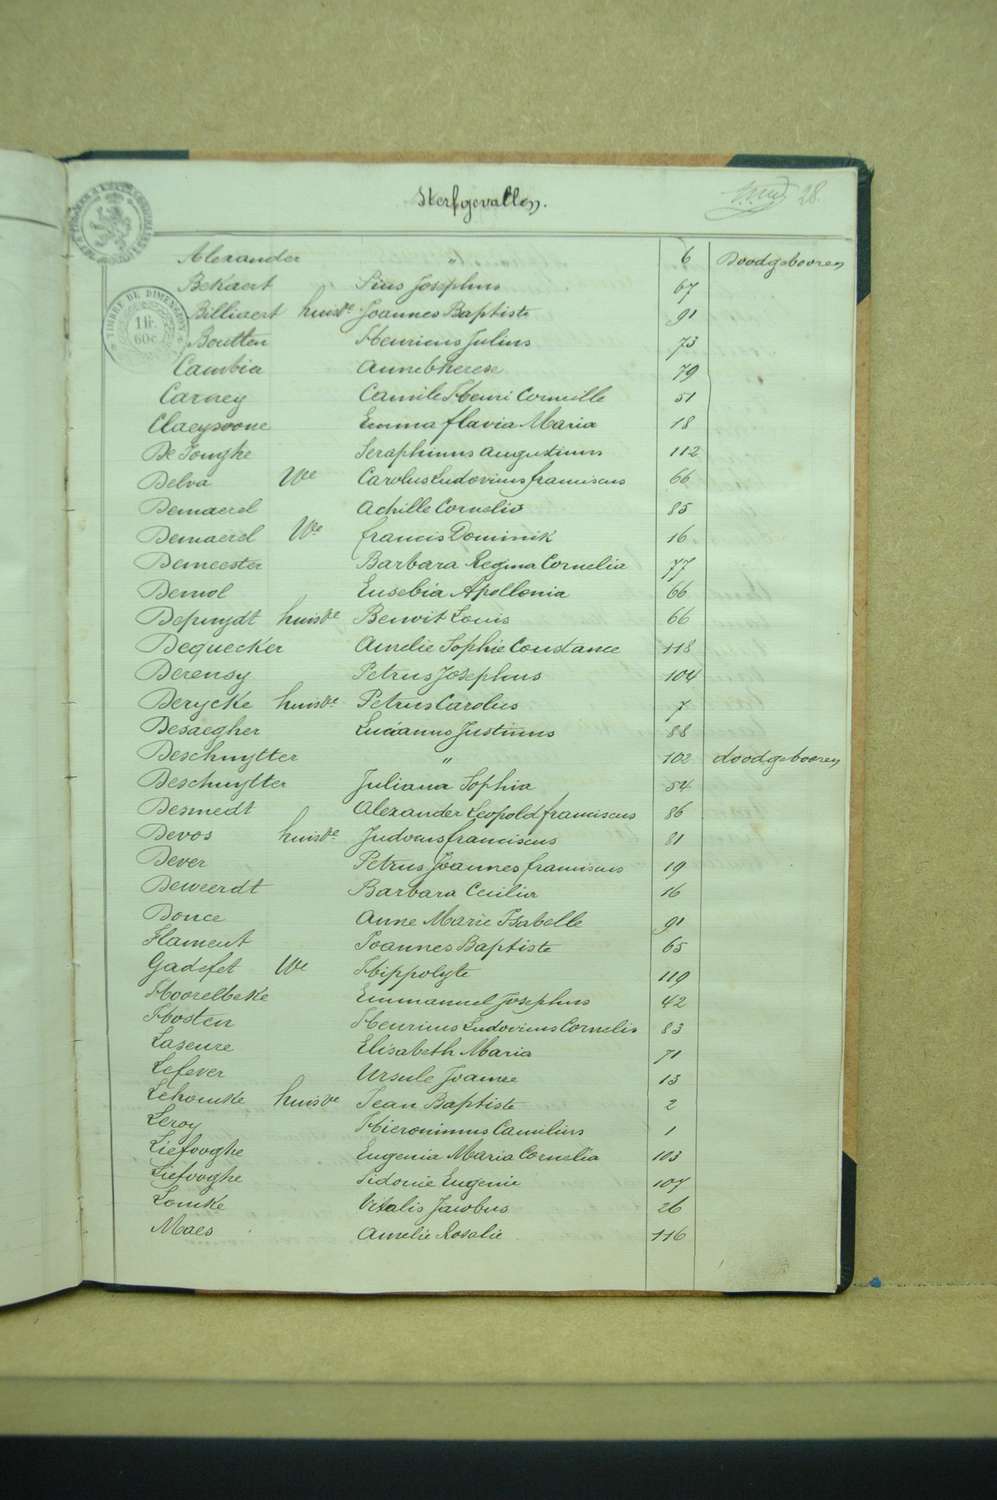 Sterfgevallen.
28.
TIMBRE DE DIMENSION
1 fr. 60 c.
Alexander " 6 Doodgebooren
Bekaert Pius Josephus 67
Billiaert huisvr Joannes Baptiste 91
Boutten Henricus Julius 73
Cambia Anne Therese 79
Carney Camile Henri Corneille 51
Claeysoone Emma flavia Maria 18
De Jonghe Seraphinus Augustinus 112
Delva We Carolus Ludovicus franciscus 66
Demaerel Achille Cornelis 85
Demaerel We francis Dominik 16
Demeester Barbara Regina Cornelia 77
Demol Eusebia Apollonia 66
Depuydt huisvr Benoit Louis 66
Dequecker Amelie Sophie Constance 118
Derensy Petrus Josephus 104
Derycke huisvr Petrus Carolus 7
Desaegher Lucianus Justinus 88
Deschuytter " 102 doodgebooren
Deschuytter Juliana Sophia 54
Desmedt Alexander Leopold franciscus 86
Devos huisvr Judocus franciscus 81
Dever Petrus Joannes franciscus 19
Deweerdt Barbara Cecilia 16
Donce Anne Marie Isabelle 91
Flament Joannes Baptiste 65
Gadefet We Hippolyte 119
Hoorelbeke Emmanuel Josephus 42
Hosten Henricus Ludovicus Cornelis 83
Laseure Elisabeth Maria 71
Lefever Ursule Joanne 13
Lehoucke huisvr Jean Baptiste 2
Leroy Hieronimus Camilius 1
Liefooghe Eugenia Maria Cornelia 103
Liefooghe Sidonie Eugenie 107
Loncke Vitalis Jacobus 26
Maes Amelie Rosalie 116